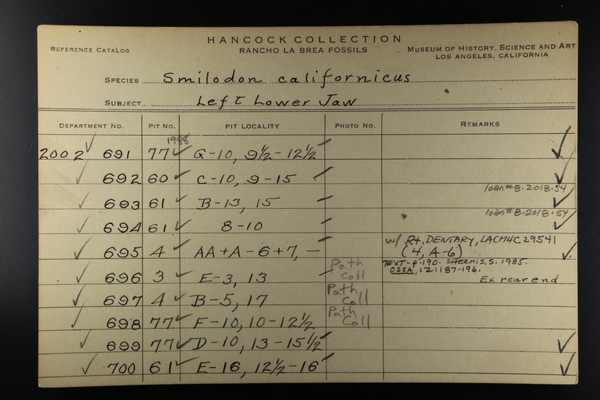 HANCOCK COLLECTION
REFERENCE CATALOG RANCHO LA BREA FOSSILS MUSEUM OF HISTORY, SCIENCE AND ART
LOS ANGELES, CALIFORNIA
SPECIES Smilodon californicus
SUBJECT Left Lower Jaw
DEPARTMENT NO. PIT NO. PIT LOCALITY PHOTO NO. REMARKS
1988
2002 691 77 G-10, 9½-12½
692 60 C-10, 9-15
loan #8-2018-54
693 61 B-13, 15
loan #8-2018-54
694 61 8-10
695 4 AA+A-6+7, - w/ Rt. DENTARY, LACMHC 29541
(4, A-6)
Path TEXT-p.190. SHERMIS, S. 1985.
696 3 E-3, 13 Coll OSSA, 12:187-196.
Ex rear end
697 4 B-5, 17 Path Coll
698 77 F-10, 10-12½ Path Coll
699 77 D-10, 13-15½
700 61 E-16, 12½-16